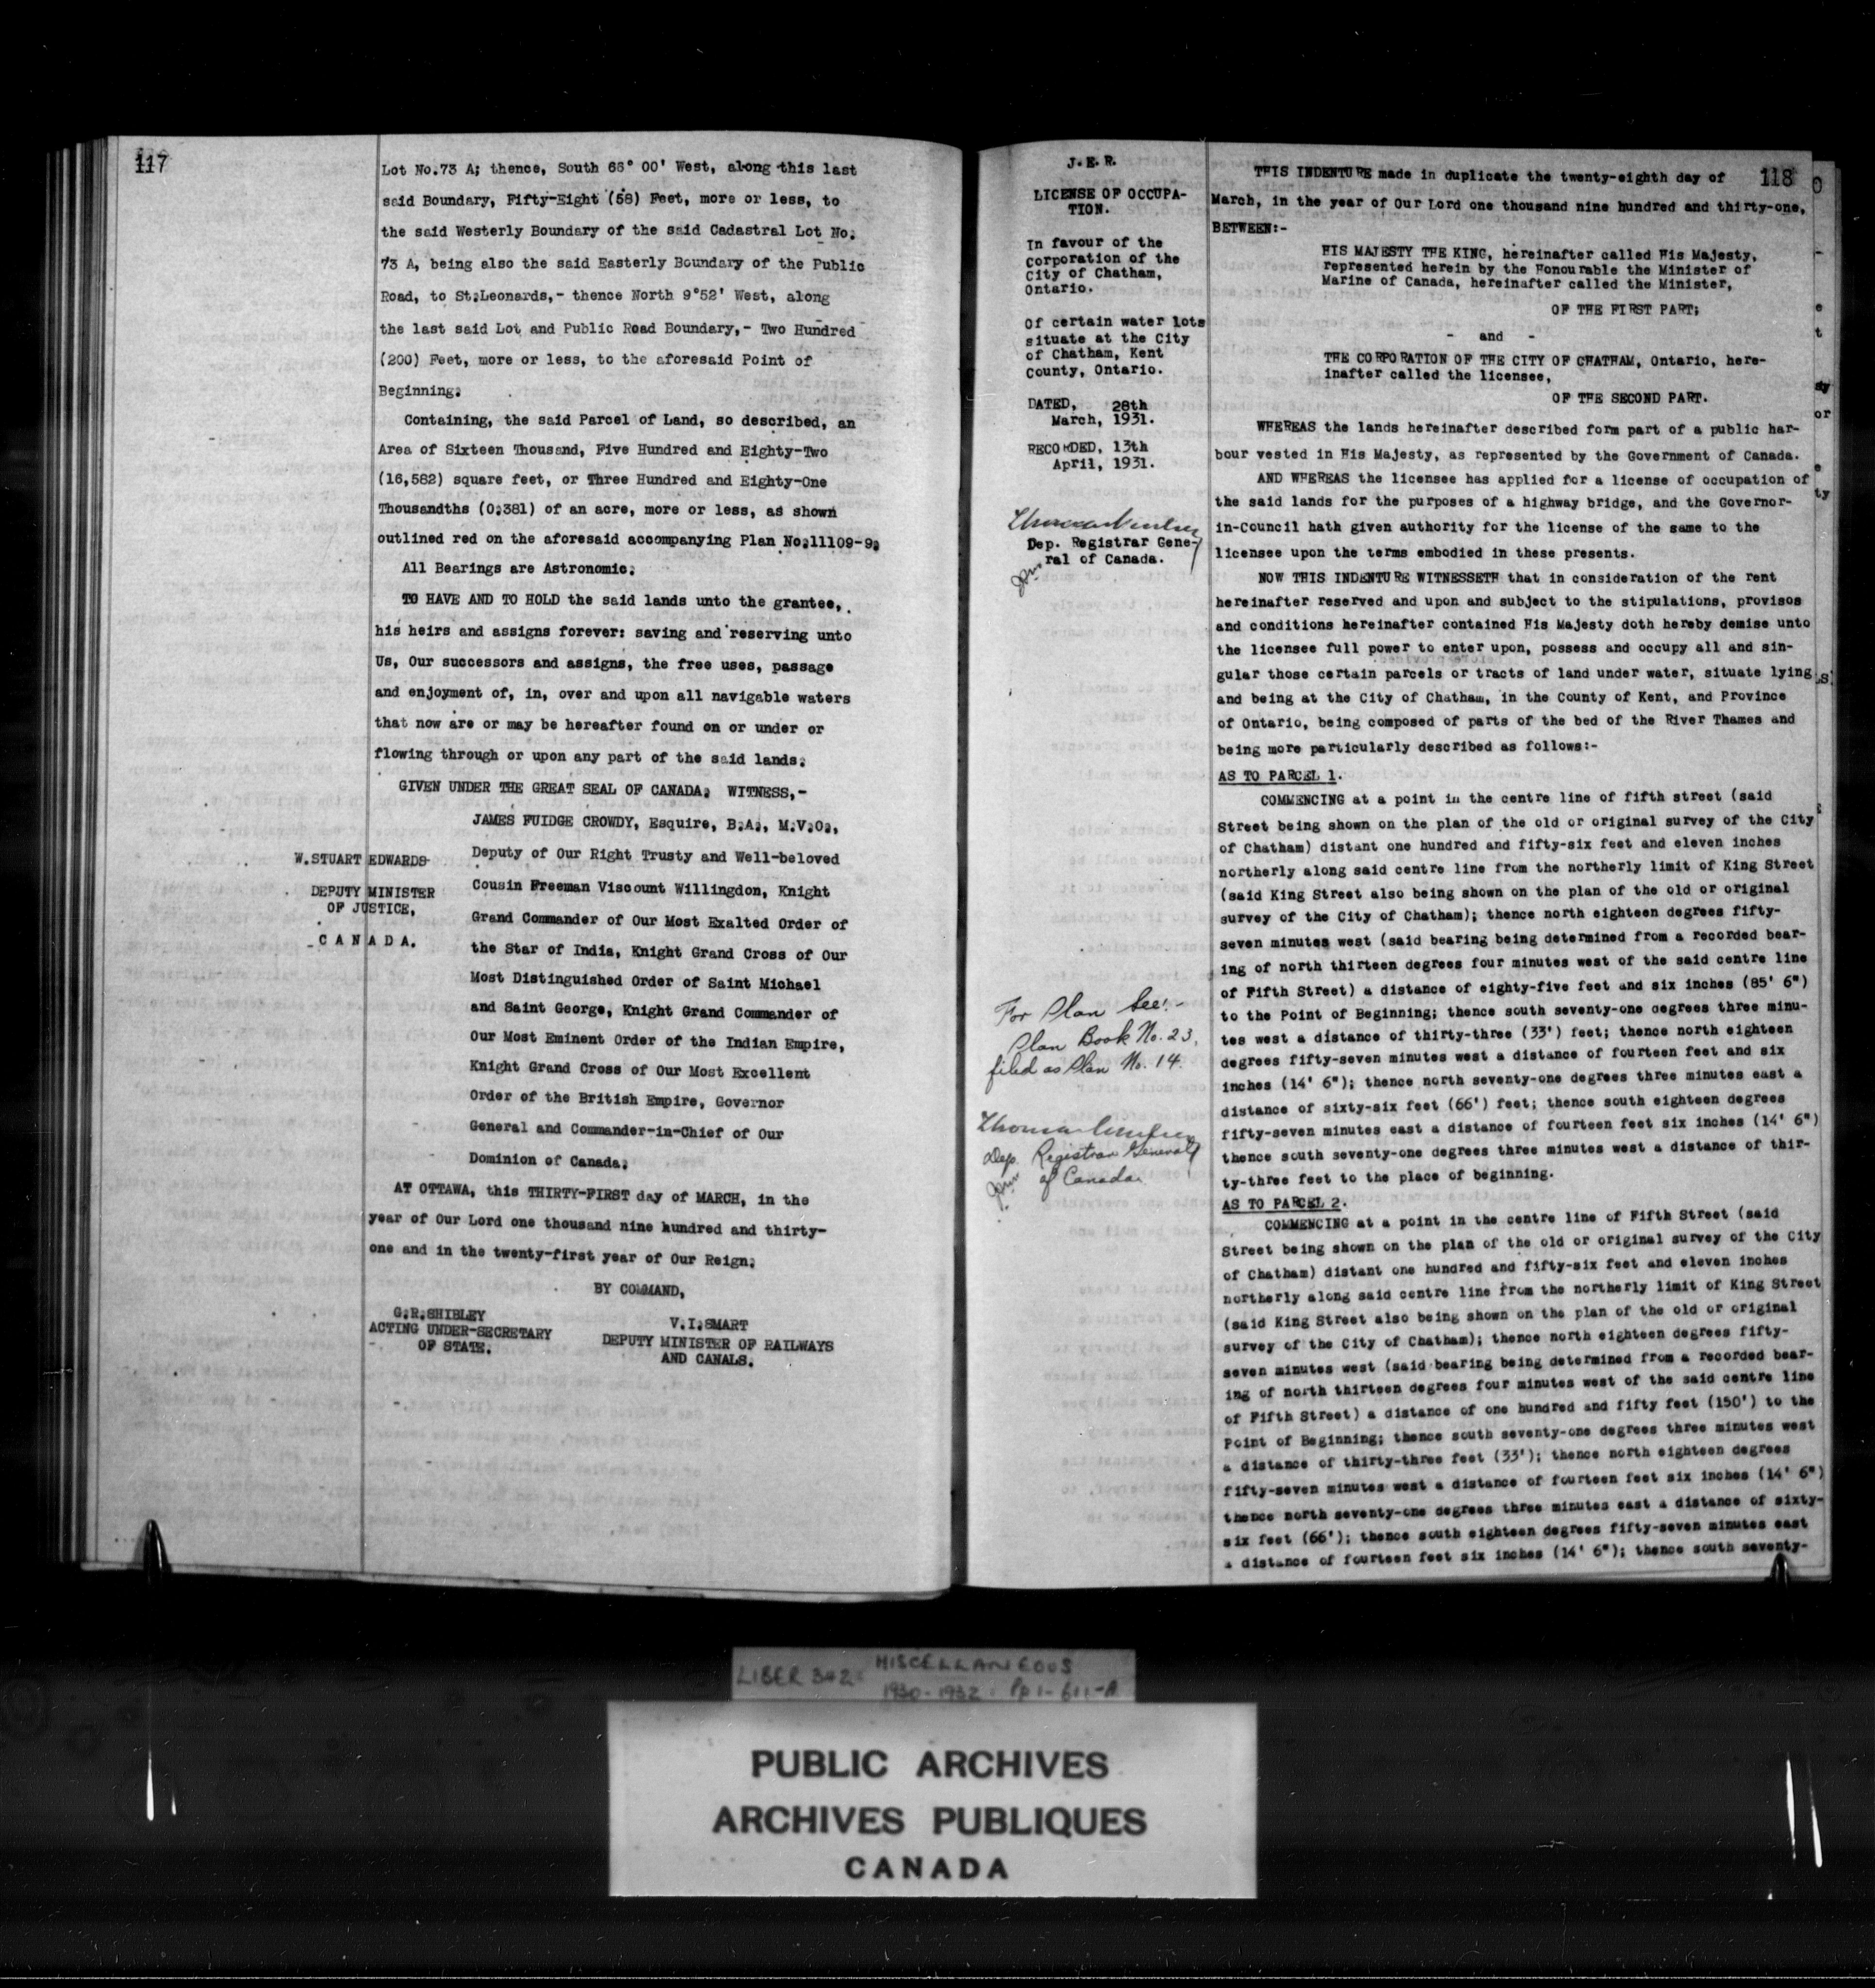 117
Lot No.73 A; thence, South 66° 00' West, along this last
said Boundary, Fifty-Eight (58) Feet, more or less, to
the said Westerly Boundary of the said Cadastral Lot No.
73 A, being also the said Easterly Boundary of the Public
Road, to St.Leonards,- thence North 9°52' West, along
the last said Lot and Public Road Boundary,- Two Hundred
(200) Feet, more or less, to the aforesaid Point of
Beginning.
Containing, the said Parcel of Land, so described, an
Area of Sixteen Thousand, Five Hundred and Eighty-Two
(16,582) square feet, or Three Hundred and Eighty-One
Thousandths (0.381) of an acre, more or less, as shown
outlined red on the aforesaid accompanying Plan No.11109-9.
All Bearings are Astronomic.
TO HAVE AND TO HOLD the said lands unto the grantee,
his heirs and assigns forever: saving and reserving unto
Us, Our successors and assigns, the free uses, passage
and enjoyment of, in, over and upon all navigable waters
that now are or may be hereafter found on or under or
flowing through or upon any part of the said lands.
GIVEN UNDER THE GREAT SEAL OF CANADA. WITNESS,-
JAMES FUIDGE CROWDY, Esquire, B.A., M.V.O.,
Deputy of Our Right Trusty and Well-beloved
Cousin Freeman Viscount Willingdon, Knight
Grand Commander of Our Most Exalted Order of
the Star of India, Knight Grand Cross of Our
Most Distinguished Order of Saint Michael
and Saint George, Knight Grand Commander of
Our Most Eminent Order of the Indian Empire,
Knight Grand Cross of Our Most Excellent
Order of the British Empire, Governor
General and Commander-in-Chief of Our
Dominion of Canada.
W.STUART EDWARDS
DEPUTY MINISTER
OF JUSTICE,
C A N A D A.
AT OTTAWA, this THIRTY-FIRST day of MARCH, in the
year of Our Lord one thousand nine hundred and thirty-
one and in the twenty-first year of Our Reign.
BY COMMAND,
G.R.SHIBLEY
ACTING UNDER-SECRETARY
OF STATE.
V.I.SMART
DEPUTY MINISTER OF RAILWAYS
AND CANALS.
J.E.R.
LICENSE OF OCCUPA-
TION.
In favour of the
Corporation of the
City of Chatham,
Ontario.
Of certain water lots
situate at the City
of Chatham, Kent
County, Ontario.
DATED, 28th
March, 1931.
RECORDED, 13th
April, 1931.
Dep. Registrar Gene-
ral of Canada.
For Plan See:-
Plan Book No. 23,
filed as Plan No. 14.
Dep. Registrar General
of Canada
118
THIS INDENTURE made in duplicate the twenty-eighth day of
March, in the year of Our Lord one thousand nine hundred and thirty-one,
BETWEEN:-
HIS MAJESTY THE KING, hereinafter called His Majesty,
represented herein by the Honourable the Minister of
Marine of Canada, hereinafter called the Minister,
OF THE FIRST PART;
- and -
THE CORPORATION OF THE CITY OF CHATHAM, Ontario, here-
inafter called the licensee,
OF THE SECOND PART.
WHEREAS the lands hereinafter described form part of a public har-
bour vested in His Majesty, as represented by the Government of Canada.
AND WHEREAS the licensee has applied for a license of occupation of
the said lands for the purposes of a highway bridge, and the Governor-
in-Council hath given authority for the license of the same to the
licensee upon the terms embodied in these presents.
NOW THIS INDENTURE WITNESSETH that in consideration of the rent
hereinafter reserved and upon and subject to the stipulations, provisos
and conditions hereinafter contained His Majesty doth hereby demise unto
the licensee full power to enter upon, possess and occupy all and sin-
gular those certain parcels or tracts of land under water, situate lying
and being at the City of Chatham, in the County of Kent, and Province
of Ontario, being composed of parts of the bed of the River Thames and
being more particularly described as follows:-
AS TO PARCEL 1.
COMMENCING at a point in the centre line of fifth street (said
Street being shown on the plan of the old or original survey of the City
of Chatham) distant one hundred and fifty-six feet and eleven inches
northerly along said centre line from the northerly limit of King Street
(said King Street also being shown on the plan of the old or original
survey of the City of Chatham); thence north eighteen degrees fifty-
seven minutes west (said bearing being determined from a recorded bear-
ing of north thirteen degrees four minutes west of the said centre line
of Fifth Street) a distance of eighty-five feet and six inches (85' 6")
to the Point of Beginning; thence south seventy-one degrees three minu-
tes west a distance of thirty-three (33') feet; thence north eighteen
degrees fifty-seven minutes west a distance of fourteen feet and six
inches (14' 6"); thence north seventy-one degrees three minutes east a
distance of sixty-six feet (66') feet; thence south eighteen degrees
fifty-seven minutes east a distance of fourteen feet six inches (14' 6")
thence south seventy-one degrees three minutes west a distance of thir-
ty-three feet to the place of beginning.
AS TO PARCEL 2.
COMMENCING at a point in the centre line of Fifth Street (said
Street being shown on the plan of the old or original survey of the City
of Chatham) distant one hundred and fifty-six feet and eleven inches
northerly along said centre line from the northerly limit of King Street
(said King Street also being shown on the plan of the old or original
survey of the City of Chatham); thence north eighteen degrees fifty-
seven minutes west (said bearing being determined from a recorded bear-
ing of north thirteen degrees four minutes west of the said centre line
of Fifth Street) a distance of one hundred and fifty feet (150') to the
Point of Beginning; thence south seventy-one degrees three minutes west
a distance of thirty-three feet (33'); thence north eighteen degrees
fifty-seven minutes west a distance of fourteen feet six inches (14' 6")
thence north seventy-one degrees three minutes east a distance of sixty-
six feet (66'); thence south eighteen degrees fifty-seven minutes east
a distance of fourteen feet six inches (14' 6"); thence south seventy-
LIBER 342 MISCELLANEOUS
1930-1932
PUBLIC ARCHIVES
ARCHIVES PUBLIQUES
CANADA